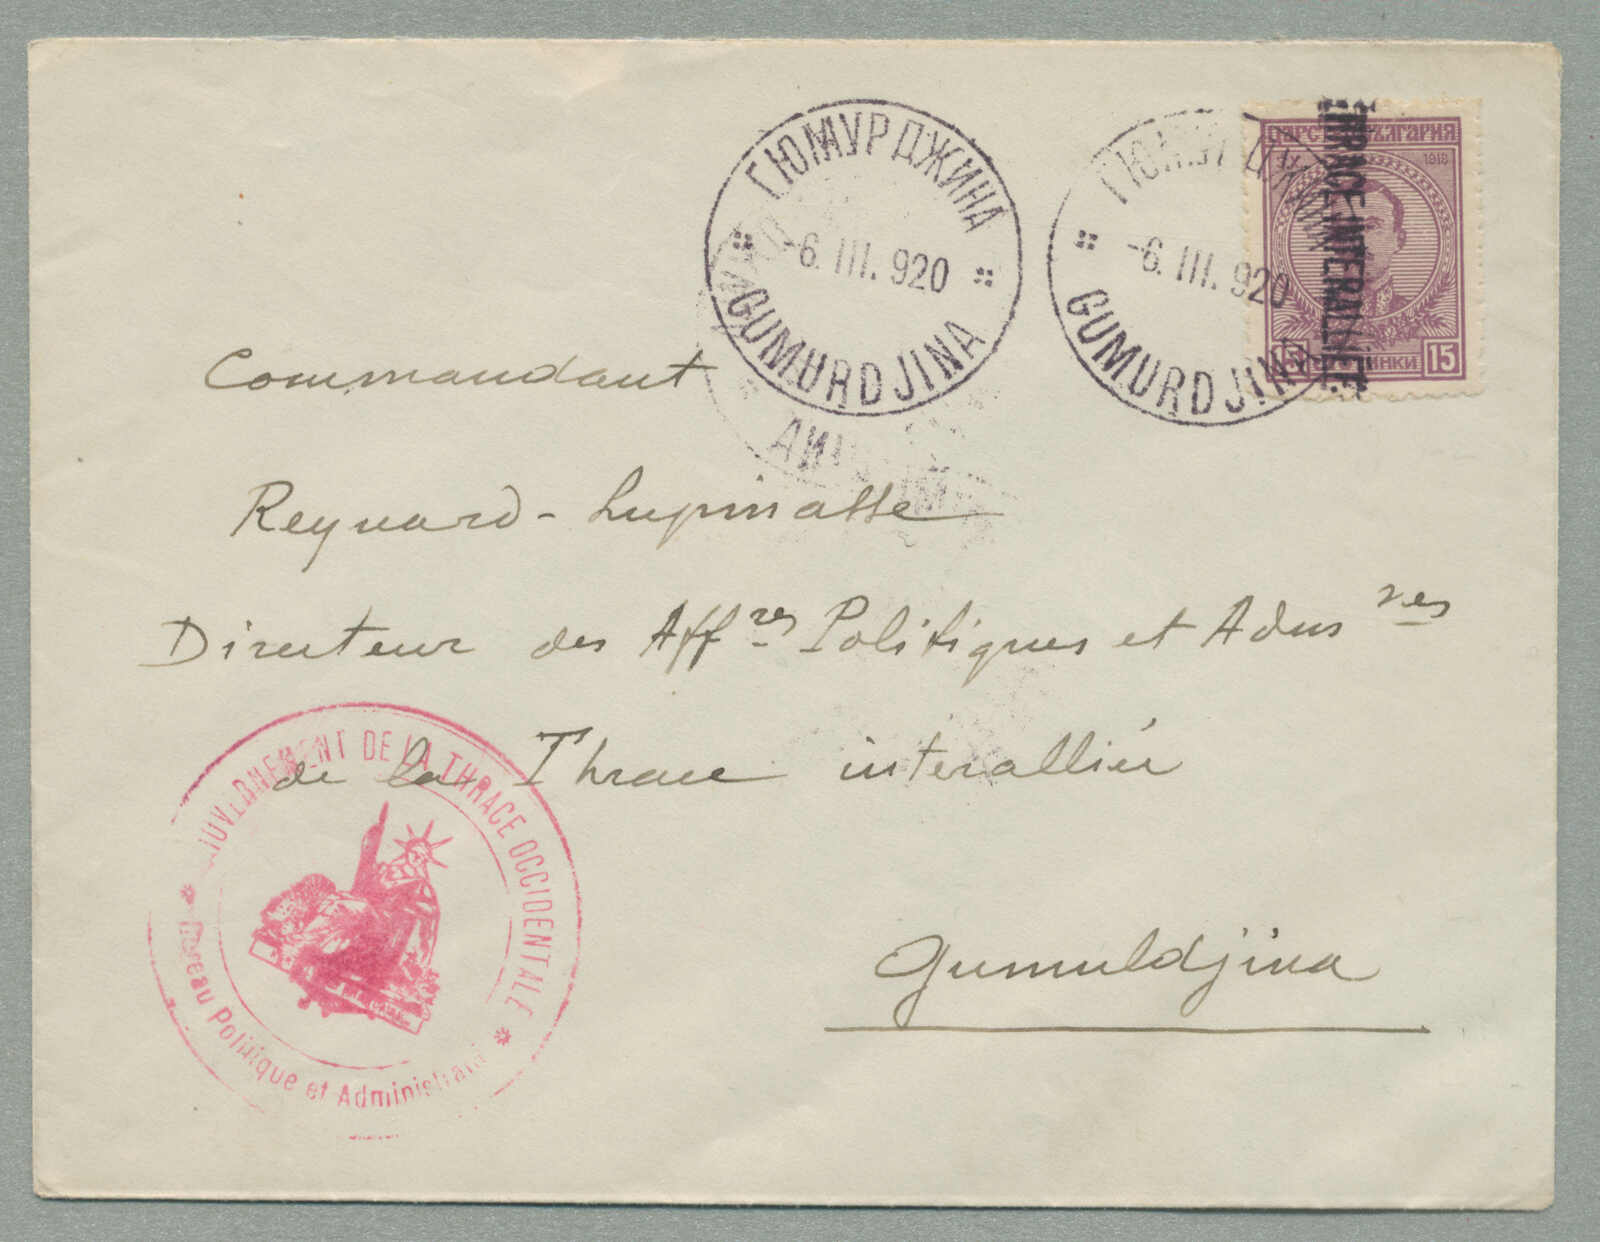 ГЮМУРДЖИНА
-6.III.920
GUMURDJINA
ГЮМУРДЖИНА
-6.III.920
GUMURDJINA
THRACE INTERALLIÉE
1918
15 15
Commandant
Reynard-Lupinatte
Directeur des Affres Politiques et Admves
de la Thrace interalliée
Gumuldjina
GOUVERNEMENT DE LA THRACE OCCIDENTALE
Bureau Politique et Administratif